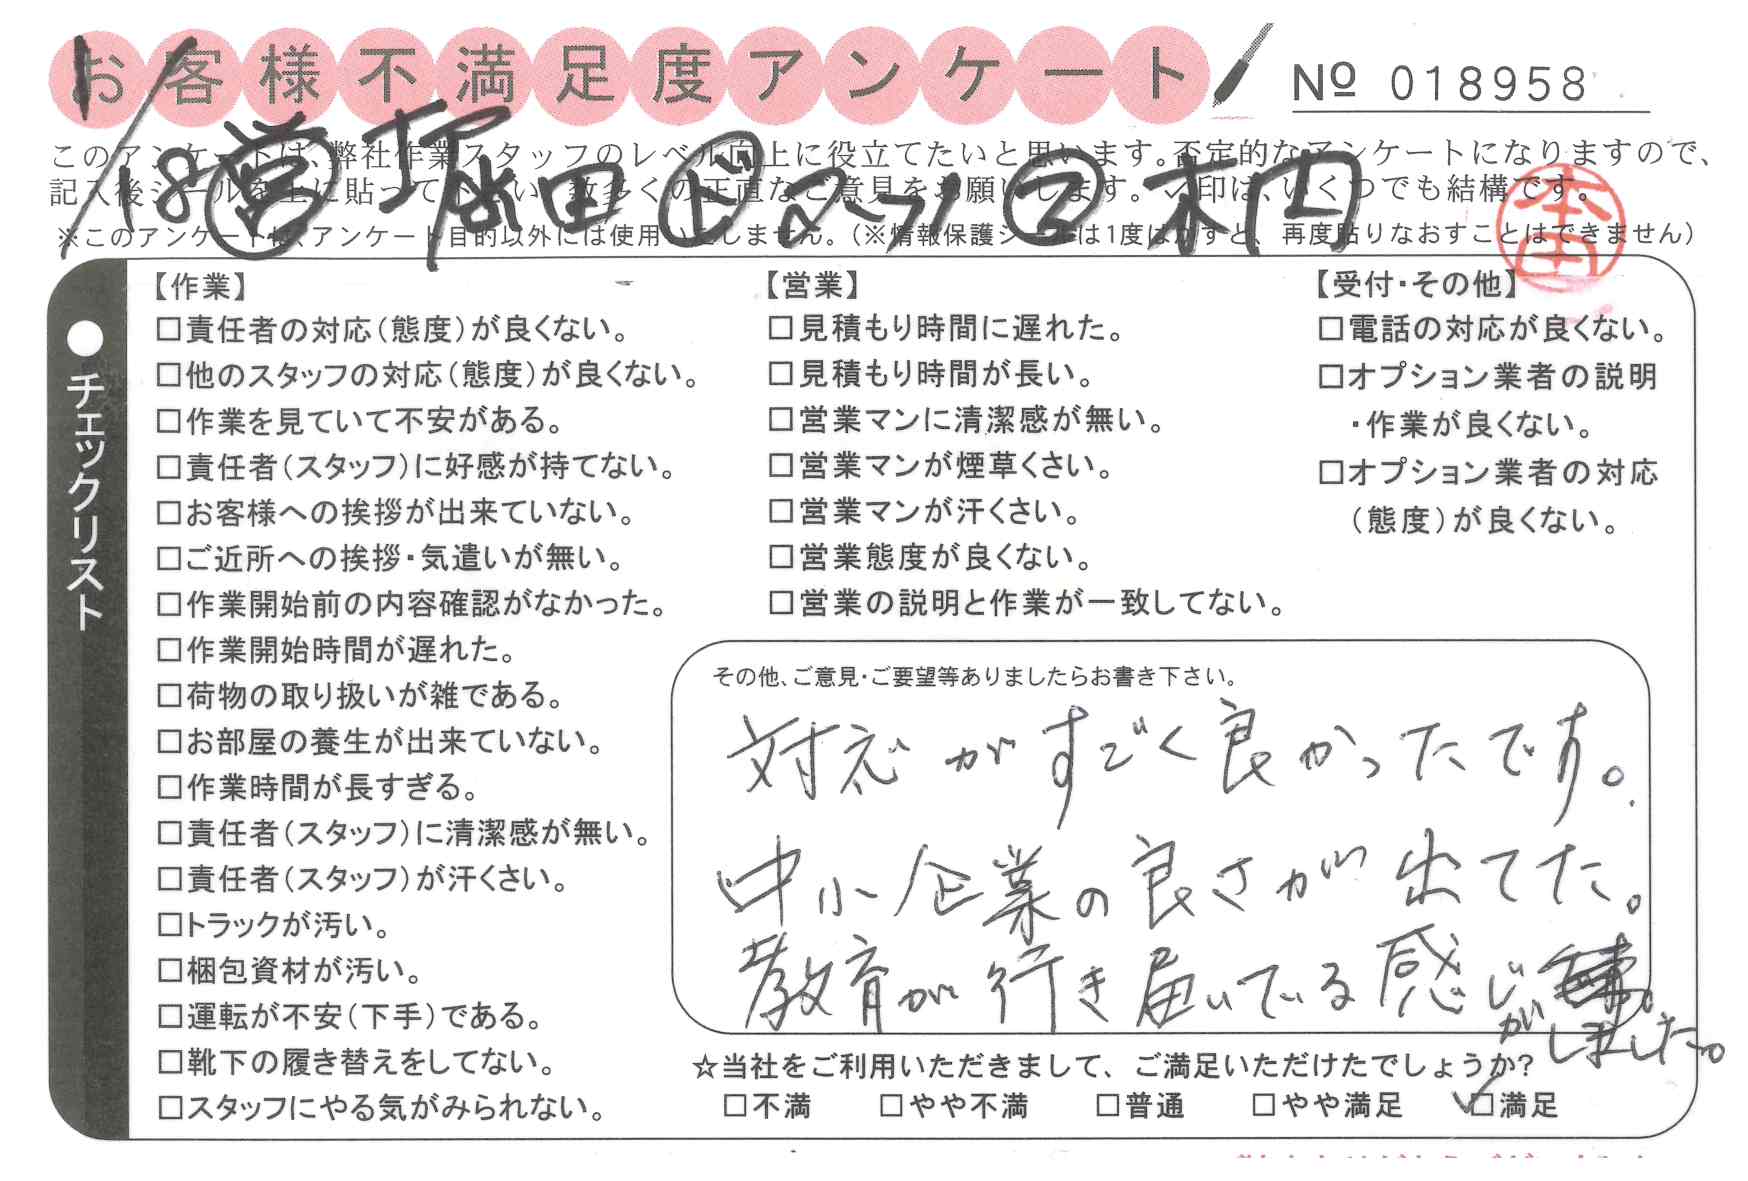 お客様不満足度アンケート
№ 018958
1/18 営 塚田 ド コ
このアンケートは、弊社作業スタッフのレベル向上に役立てたいと思います。否定的なアンケートになりますので、
記入後シールを上に貼って下さい。数多くの正直なご意見をお願いします。✓印は、いくつでも結構です。
※このアンケートは、アンケート目的以外には使用いたしません。（※情報保護シールは1度はがすと、再度貼りなおすことはできません）
●チェックリスト
【作業】
□責任者の対応（態度）が良くない。
□他のスタッフの対応（態度）が良くない。
□作業を見ていて不安がある。
□責任者（スタッフ）に好感が持てない。
□お客様への挨拶が出来ていない。
□ご近所への挨拶・気遣いが無い。
□作業開始前の内容確認がなかった。
□作業開始時間が遅れた。
□荷物の取り扱いが雑である。
□お部屋の養生が出来ていない。
□作業時間が長すぎる。
□責任者（スタッフ）に清潔感が無い。
□責任者（スタッフ）が汗くさい。
□トラックが汚い。
□梱包資材が汚い。
□運転が不安（下手）である。
□靴下の履き替えをしてない。
□スタッフにやる気がみられない。
【営業】
□見積もり時間に遅れた。
□見積もり時間が長い。
□営業マンに清潔感が無い。
□営業マンが煙草くさい。
□営業マンが汗くさい。
□営業態度が良くない。
□営業の説明と作業が一致してない。
【受付・その他】
□電話の対応が良くない。
□オプション業者の説明
・作業が良くない。
□オプション業者の対応
（態度）が良くない。
その他、ご意見・ご要望等ありましたらお書き下さい。
対応がすごく良かったです。
中小企業の良さが出てた。
教育が行き届いている感じ
がしました。
☆当社をご利用いただきまして、ご満足いただけたでしょうか?
□不満 □やや不満 □普通 □やや満足 ✓□満足